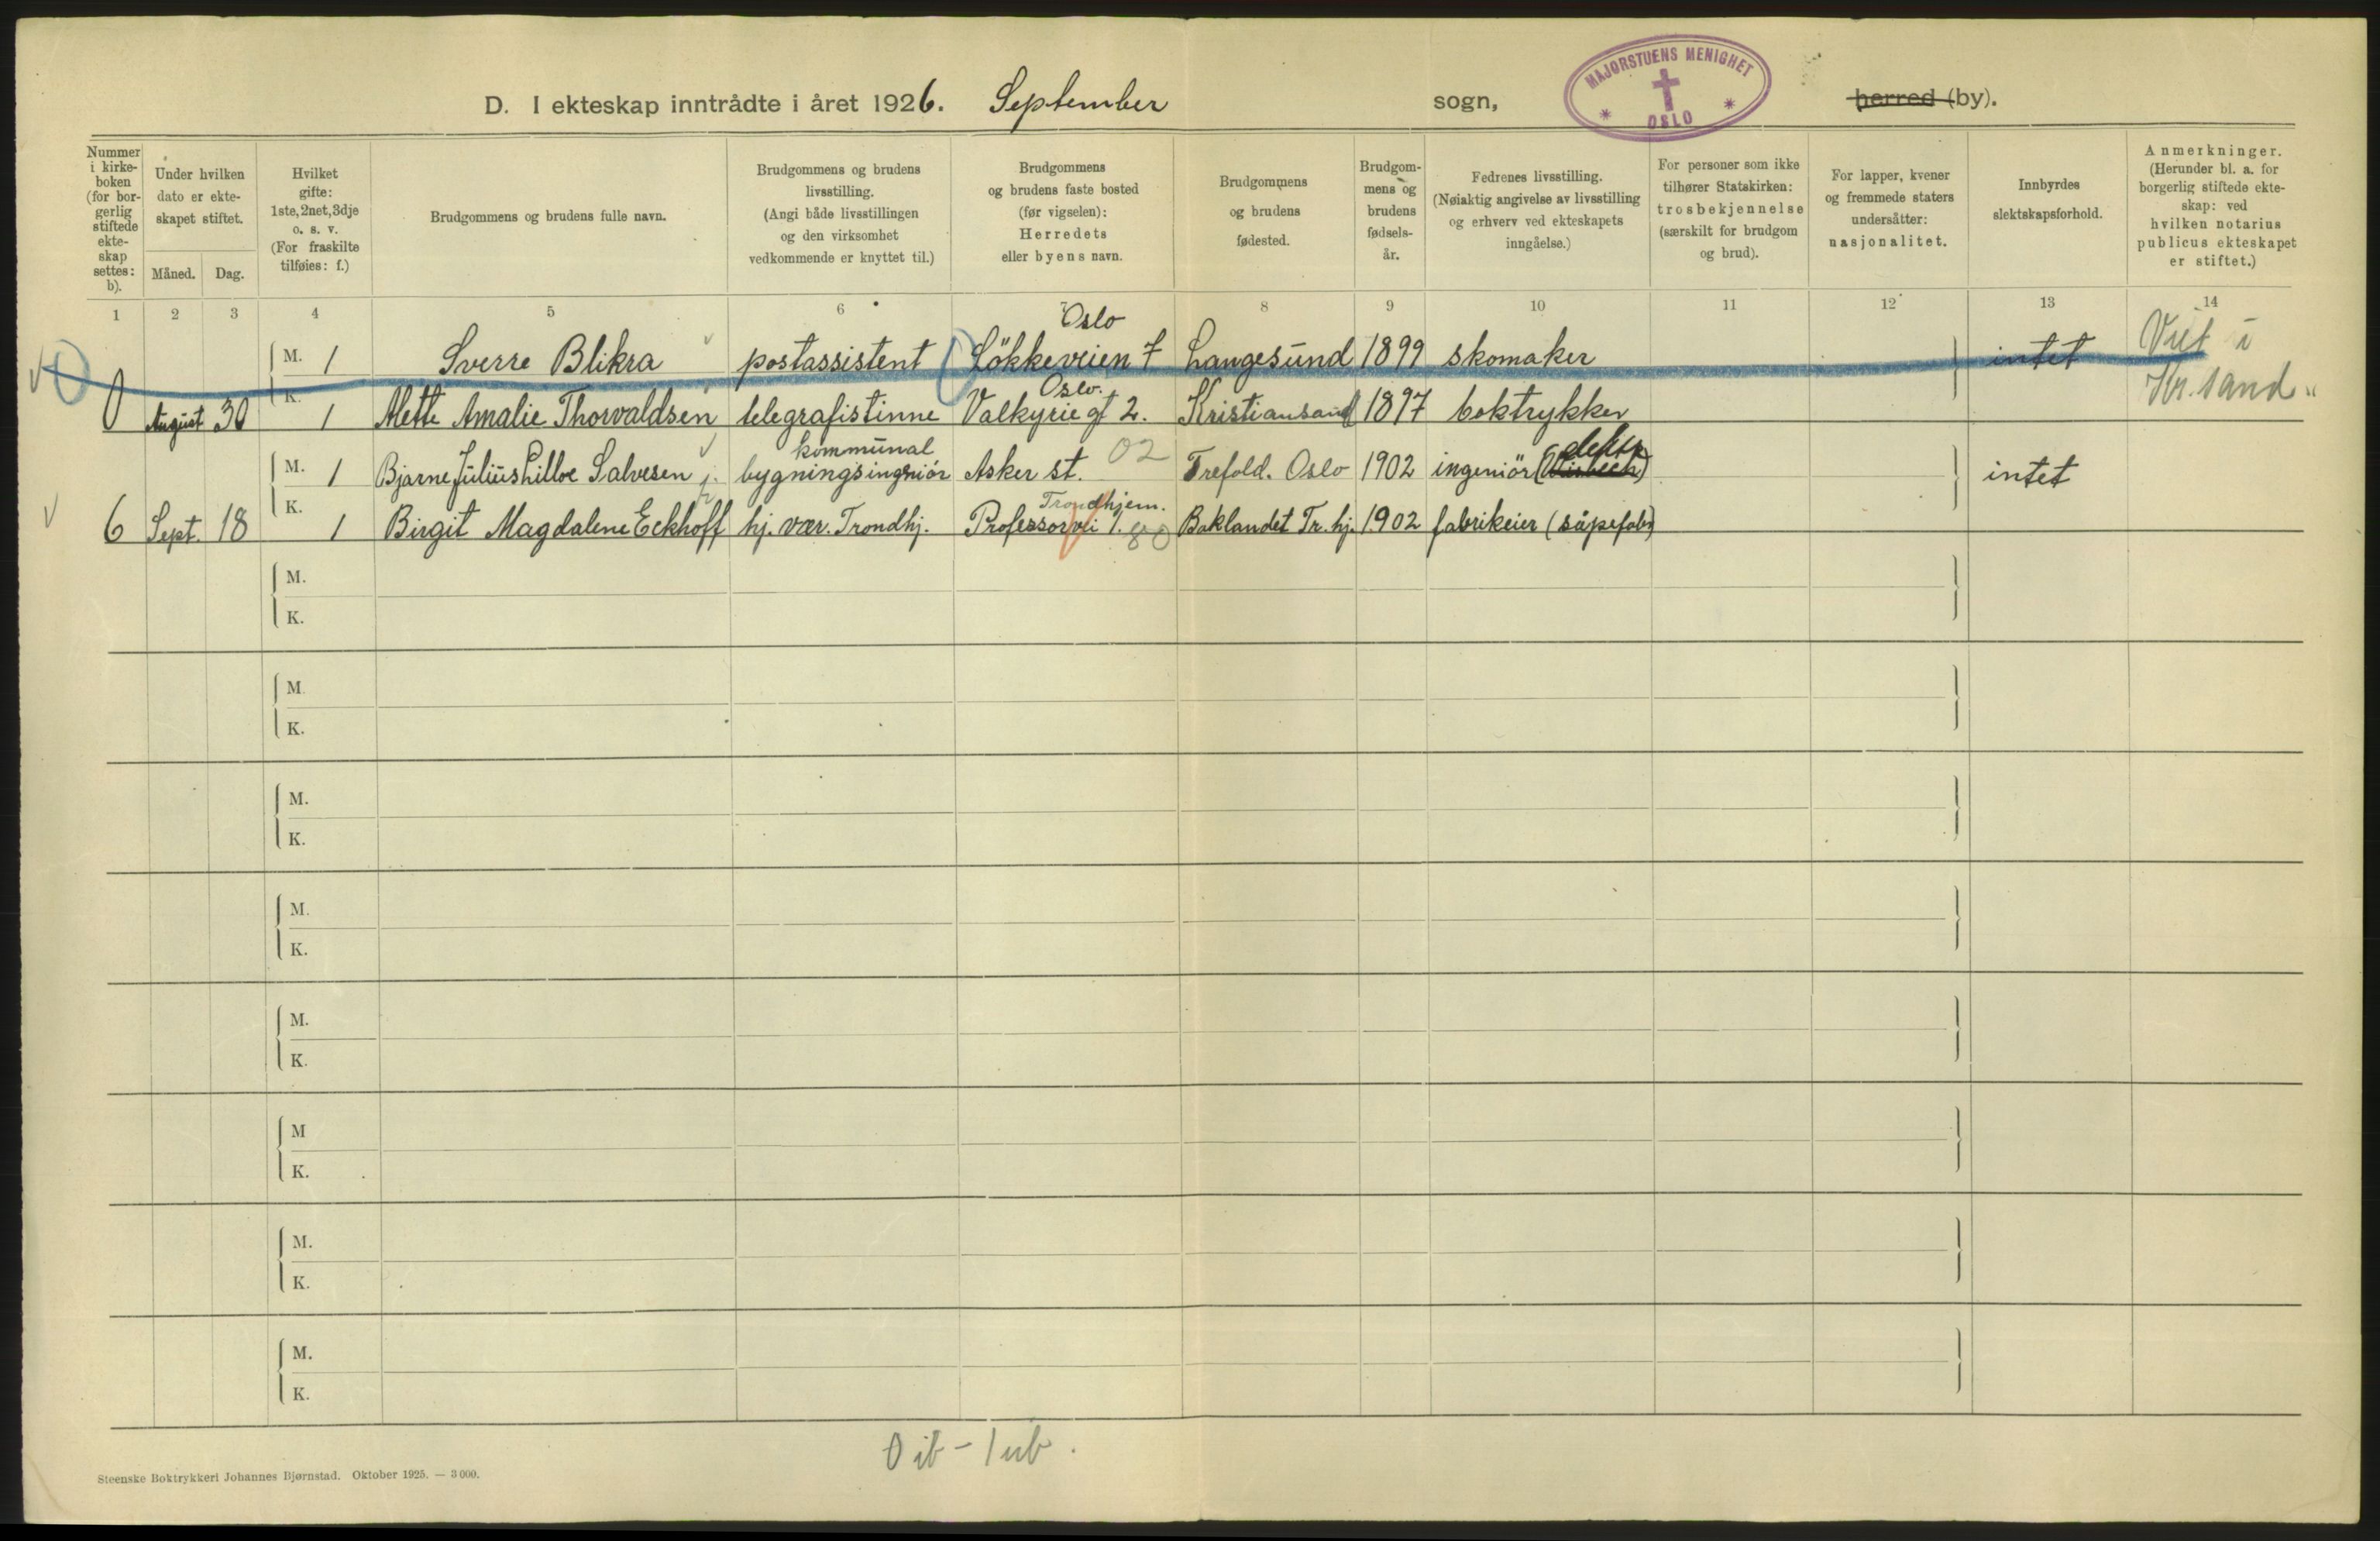 D. I ekteskap inntrådte i året 1926. September sogn, MAJORSTUENS MENIGHET * OSLO * herred (by).
Nummer i kirkeboken (for borgerlig stiftede ekteskap settes: b).
Under hvilken dato er ekteskapet stiftet.
Måned. Dag.
Hvilket gifte: 1ste, 2net, 3dje o. s. v. (For fraskilte tilføies: f.)
Brudgommens og brudens fulle navn.
Brudgommens og brudens livsstilling. (Angi både livsstillingen og den virksomhet vedkommende er knyttet til.)
Brudgommens og brudens faste bosted (før vigselen): Herredets eller byens navn.
Brudgommens og brudens fødested.
Brudgommens og brudens fødselsår.
Fedrenes livsstilling. (Nøiaktig angivelse av livsstilling og erhverv ved ekteskapets inngåelse.)
For personer som ikke tilhører Statskirken: trosbekjennelse (særskilt for brudgom og brud).
For lapper, kvener og fremmede staters undersåtter: nasjonalitet.
Innbyrdes slektskapsforhold.
Anmerkninger. (Herunder bl. a. for borgerlig stiftede ekteskap: ved hvilken notarius publicus ekteskapet er stiftet.)
1 2 3 4 5 6 7 8 9 10 11 12 13 14
Oslo
M. 1 Sverre Blikra postassistent Lökkeveien 7 Langesund 1899 skomaker intet Viet i
Oslo.
0 August 30 K. 1 Mette Amalie Thorvaldsen telegrafistinne Valkyrie gt 2. Kristiansand 1897 boktrykker Kr. sand
kommunal 02 elektr
M. 1 Bjarne Julius Lilloe Salvesen j. bygningsingeniör Asker st. Trefold. Oslo 1902 ingeniör intet
Trondhjem.
6 Sept. 18 K. 1 Birgit Magdalene Eckhoff hj. vær. Trondhj. Professorvei 1. 80 Baklandet Tr. hj. 1902 fabrikeier (såpefabr)
M.
K.
M.
K.
M.
K.
M.
K.
M.
K.
M
K.
M.
K.
M.
K.
0 ib - 1 ub.
Steenske Boktrykkeri Johannes Bjørnstad. Oktober 1925. — 3 000.